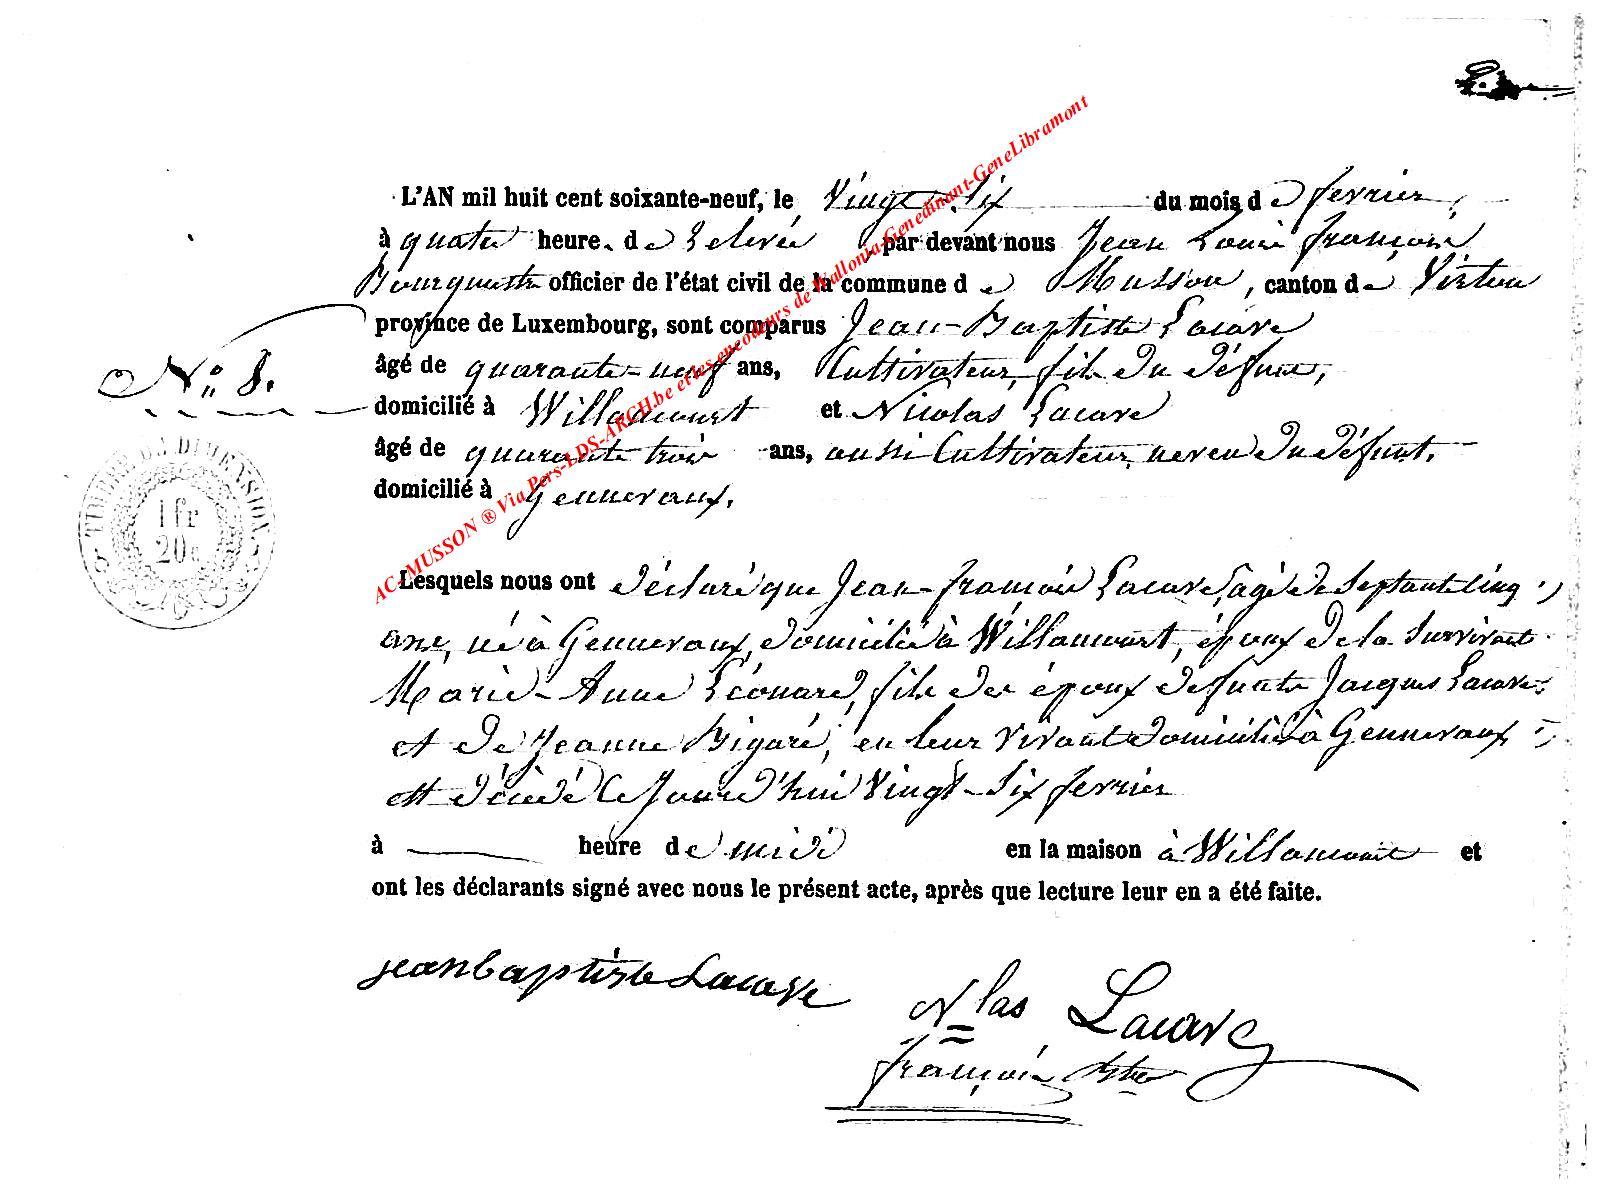 L'AN mil huit cent soixante-neuf, le Vingt-Six du mois de fevrier,
à quatre heures de relevée, par devant nous Jean Louis françois
Bourguette officier de l'état civil de la commune de Musson, canton de Virton
province de Luxembourg, sont comparus Jean-Baptiste Lacave
âgé de quarante-neuf ans, Cultivateur, fils du défunt,
N° 8.
domicilié à Willancourt et Nicolas Lacave
âgé de quarante trois ans, aussi Cultivateur, neveu du défunt,
domicilié à Genneraux.
TIMBRE DE DIMENSION
1 fr
20 c
Lesquels nous ont déclaré que Jean-françois Lacave, agé de Septante Cinq
ans, né à Genneraux, domicilié à Willancourt, époux de la Survivante
Marie-Anne Léonard, fils des époux défunts Jacques Lacave
et de Jeanne Bigaré, en leur vivant domiciliés à Genneraux
est décédé Ce Jourd'hui Vingt-Six fevrier
à heure de midi en la maison à Willancourt et
ont les déclarants signé avec nous le présent acte, après que lecture leur en a été faite.
jeanbaptiste Lacave
Nlas Lacave
françois
AC-MUSSON ® Via Pers-LDS-ARCH.be et les encodeurs de Wallonia-Genedinant-GeneLibramont